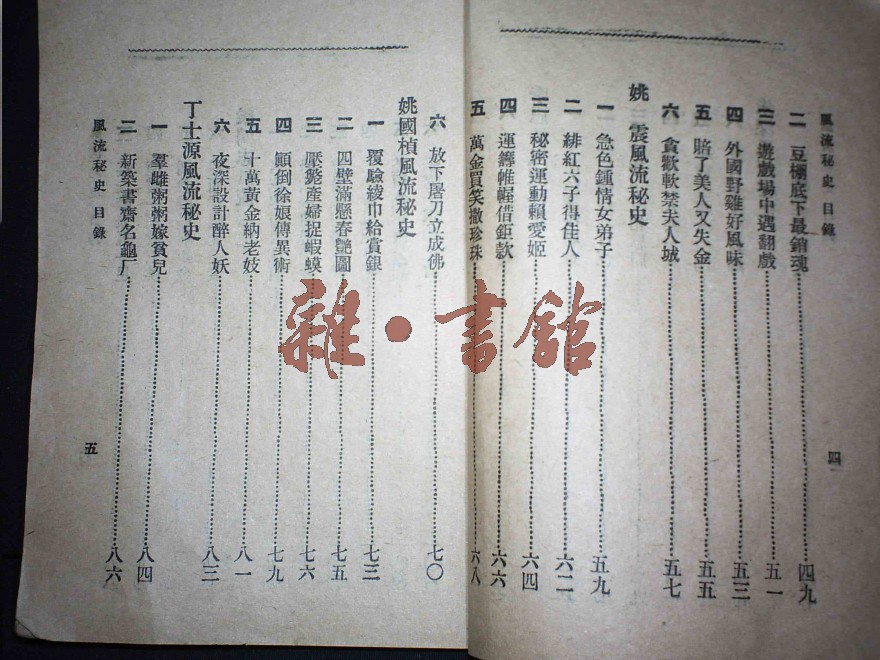 風流秘史 目錄
二 豆棚底下最銷魂 四九
三 遊戲場中遇翻戲 五一
四 外國野雞好風味 五三
五 賭了美人又失金 五五
六 貪歡軟禁夫人城 五七
姚 震風流秘史
一 急色鍾情女弟子 五九
二 緋紅六子得佳人 六二
三 秘密運動賴愛姬 六四
四 運籌帷幄借鉅款 六六
五 萬金買笑撒珍珠 六八
四
六 放下屠刀立成佛 七〇
姚國楨風流秘史
一 覆驗綾巾給賞銀 七三
二 四壁滿懸春艷圖 七五
三 壓斃產婦捉蝦蟆 七六
四 顛倒徐娘傳異術 七九
五 十萬黃金納老妓 八一
六 夜深設計醉人妖 八三
丁士源風流秘史
一 羣雌粥粥嫁貧兒 八四
二 新築書齋名龜厂 八六
風流秘史 目錄
五
雜·書館